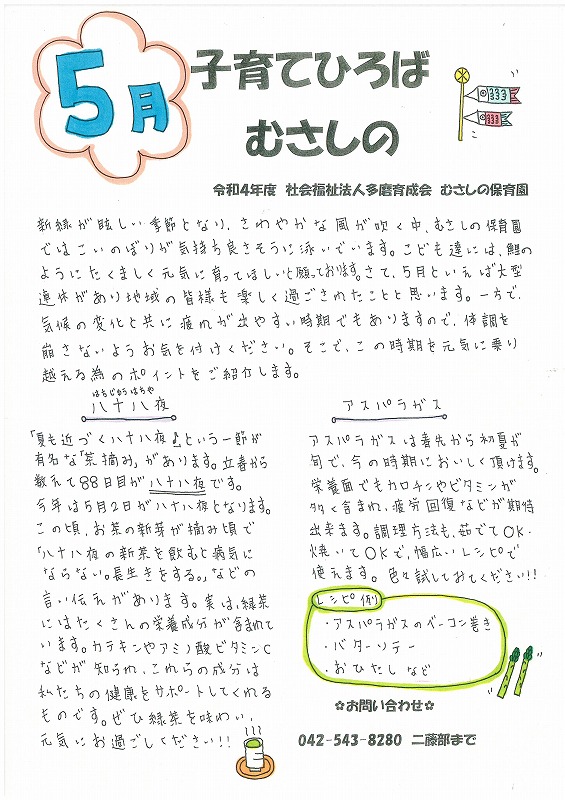 5月
子育てひろば
むさしの
令和4年度 社会福祉法人多磨育成会 むさしの保育園
新緑が眩しい季節となり、さわやかな風が吹く中、むさしの保育園
ではこいのぼりが気持ち良さそうに泳いでいます。こども達には、鯉の
ようにたくましく元気に育ってほしいと願っております。さて、5月といえば大型
連休があり地域の皆様も楽しく過ごされたことと思います。一方で、
気候の変化と共に疲れが出やすい時期でもありますので、体調を
崩さないようお気を付けください。そこで、この時期を元気に乗り
越える為のポイントをご紹介します。
はちじゅうはちや
八十八夜
「夏も近づく八十八夜♪」という一節が
有名な「茶摘み」があります。立春から
数えて88日目が八十八夜です。
今年は5月2日が八十八夜となります。
この頃、お茶の新芽が摘み頃で
「八十八夜の新茶を飲むと病気に
ならない。長生きをする。」などの
言い伝えがあります。実は、緑茶
にはたくさんの栄養成分が含まれて
います。カテキンやアミノ酸ビタミンC
などが知られ、これらの成分は
私たちの健康をサポートしてくれる
ものです。ぜひ緑茶を味わい、
元気にお過ごしください!!
アスパラガス
アスパラガスは春先から初夏が
旬で、今の時期においしく頂けます。
栄養面でもカロチンやビタミンが
多く含まれ、疲労回復などが期待
出来ます。調理方法も、茹でてOK・
焼いてOKで、幅広いレシピで
使えます。色々試しておてください!!
レシピ例
・アスパラガスのベーコン巻き
・バターソテー
・おひたし など
✿お問い合わせ✿
042-543-8280 二藤部まで